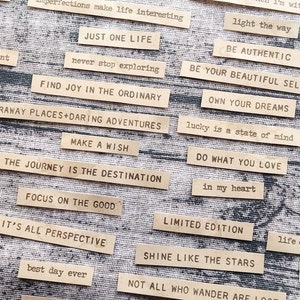 imperfections make life interesting
light the way
JUST ONE LIFE
BE AUTHENTIC
never stop exploring
BE YOUR BEAUTIFUL SEL
FIND JOY IN THE ORDINARY
OWN YOUR DREAMS
RAWAY PLACES+DARING ADVENTURES
lucky is a state of mind
MAKE A WISH
DO WHAT YOU LOVE
THE JOURNEY IS THE DESTINATION
in my heart
FOCUS ON THE GOOD
LIMITED EDITION
IT'S ALL PERSPECTIVE
life
SHINE LIKE THE STARS
best day ever
NOT ALL WHO WANDER ARE LOST